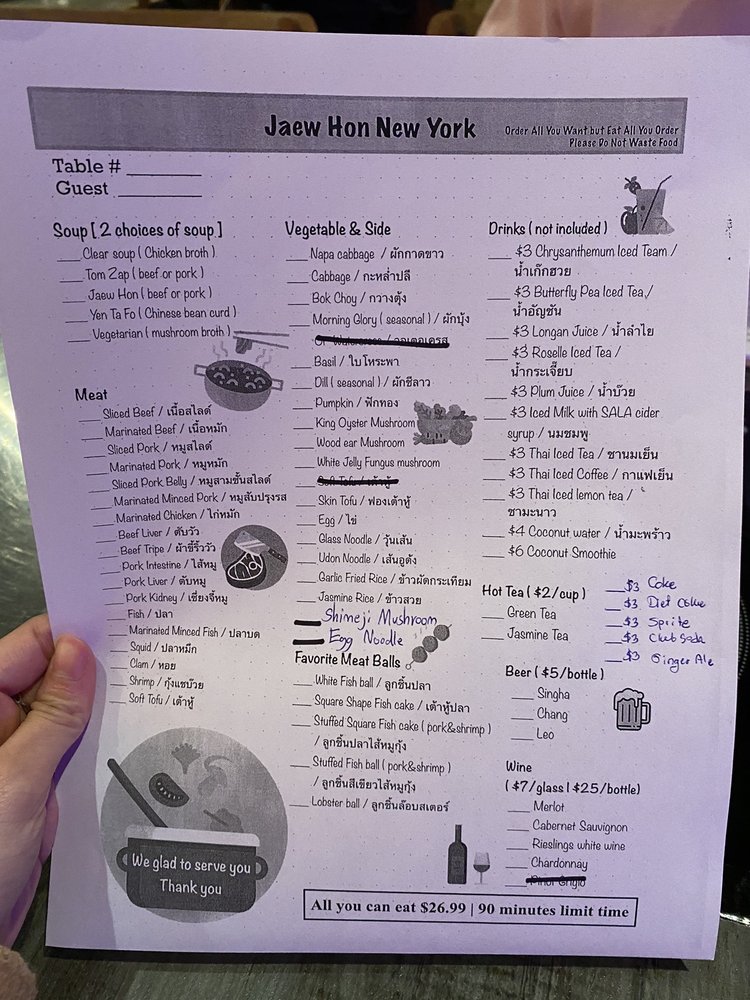 Jaew Hon New York
Order All You Want but Eat All You Order
Please Do Not Waste Food
Table # ______
Guest ______
Soup [ 2 choices of soup ]
___ Clear soup ( Chicken broth )
___ Tom Zap ( beef or pork )
___ Jaew Hon ( beef or pork )
___ Yen Ta Fo ( Chinese bean curd )
___ Vegetarian ( mushroom broth )
Meat
___ Sliced Beef / เนื้อสไลด์
___ Marinated Beef / เนื้อหมัก
___ Sliced Pork / หมูสไลด์
___ Marinated Pork / หมูหมัก
___ Sliced Pork Belly / หมูสามชั้นสไลด์
___ Marinated Minced Pork / หมูสับปรุงรส
___ Marinated Chicken / ไก่หมัก
___ Beef Liver / ตับวัว
___ Beef Tripe / ผ้าขี้ริ้ววัว
___ Pork Intestine / ไส้หมู
___ Pork Liver / ตับหมู
___ Pork Kidney / เซี่ยงจี้หมู
___ Fish / ปลา
___ Marinated Minced Fish / ปลาบด
___ Squid / ปลาหมึก
___ Clam / หอย
___ Shrimp / กุ้งแชบ๊วย
___ Soft Tofu / เต้าหู้
We glad to serve you
Thank you
Vegetable & Side
___ Napa cabbage / ผักกาดขาว
___ Cabbage / กะหล่ำปลี
___ Bok Choy / กวางตุ้ง
___ Morning Glory ( seasonal ) / ผักบุ้ง
___ Or Watercress / วอเตอเครส
___ Basil / ใบโหระพา
___ Dill ( seasonal ) / ผักชีลาว
___ Pumpkin / ฟักทอง
___ King Oyster Mushroom
___ Wood ear Mushroom
___ White Jelly Fungus mushroom
___ Soft Tofu / เต้าหู้
___ Skin Tofu / ฟองเต้าหู้
___ Egg / ไข่
___ Glass Noodle / วุ้นเส้น
___ Udon Noodle / เส้นอูด้ง
___ Garlic Fried Rice / ข้าวผัดกระเทียม
___ Jasmine Rice / ข้าวสวย
___ Shimeji Mushroom
___ Egg Noodle
Favorite Meat Balls
___ White Fish ball / ลูกชิ้นปลา
___ Square Shape Fish cake / เต้าหู้ปลา
___ Stuffed Square Fish cake ( pork&shrimp )
/ ลูกชิ้นปลาไส้หมูกุ้ง
___ Stuffed Fish ball ( pork&shrimp )
/ ลูกชิ้นสีเขียวไส้หมูกุ้ง
___ Lobster ball / ลูกชิ้นล๊อบสเตอร์
Drinks ( not included )
___ $3 Chrysanthemum Iced Team /
น้ำเก๊กฮวย
___ $3 Butterfly Pea Iced Tea /
น้ำอัญชัน
___ $3 Longan Juice / น้ำลำไย
___ $3 Roselle Iced Tea /
น้ำกระเจี๊ยบ
___ $3 Plum Juice / น้ำบ๊วย
___ $3 Iced Milk with SALA cider
syrup / นมชมพู
___ $3 Thai Iced Tea / ชานมเย็น
___ $3 Thai Iced Coffee / กาแฟเย็น
___ $3 Thai Iced lemon tea /
ชามะนาว
___ $4 Coconut water / น้ำมะพร้าว
___ $6 Coconut Smoothie
Hot Tea ( $2/cup )
___ Green Tea
___ Jasmine Tea
___ $3 Coke
___ $3 Diet Coke
___ $3 Sprite
___ $3 Club Soda
___ $3 Ginger Ale
Beer ( $5/bottle )
___ Singha
___ Chang
___ Leo
Wine
( $7/glass | $25/bottle)
___ Merlot
___ Cabernet Sauvignon
___ Rieslings white wine
___ Chardonnay
___ Pinot Grigio
All you can eat $26.99 | 90 minutes limit time